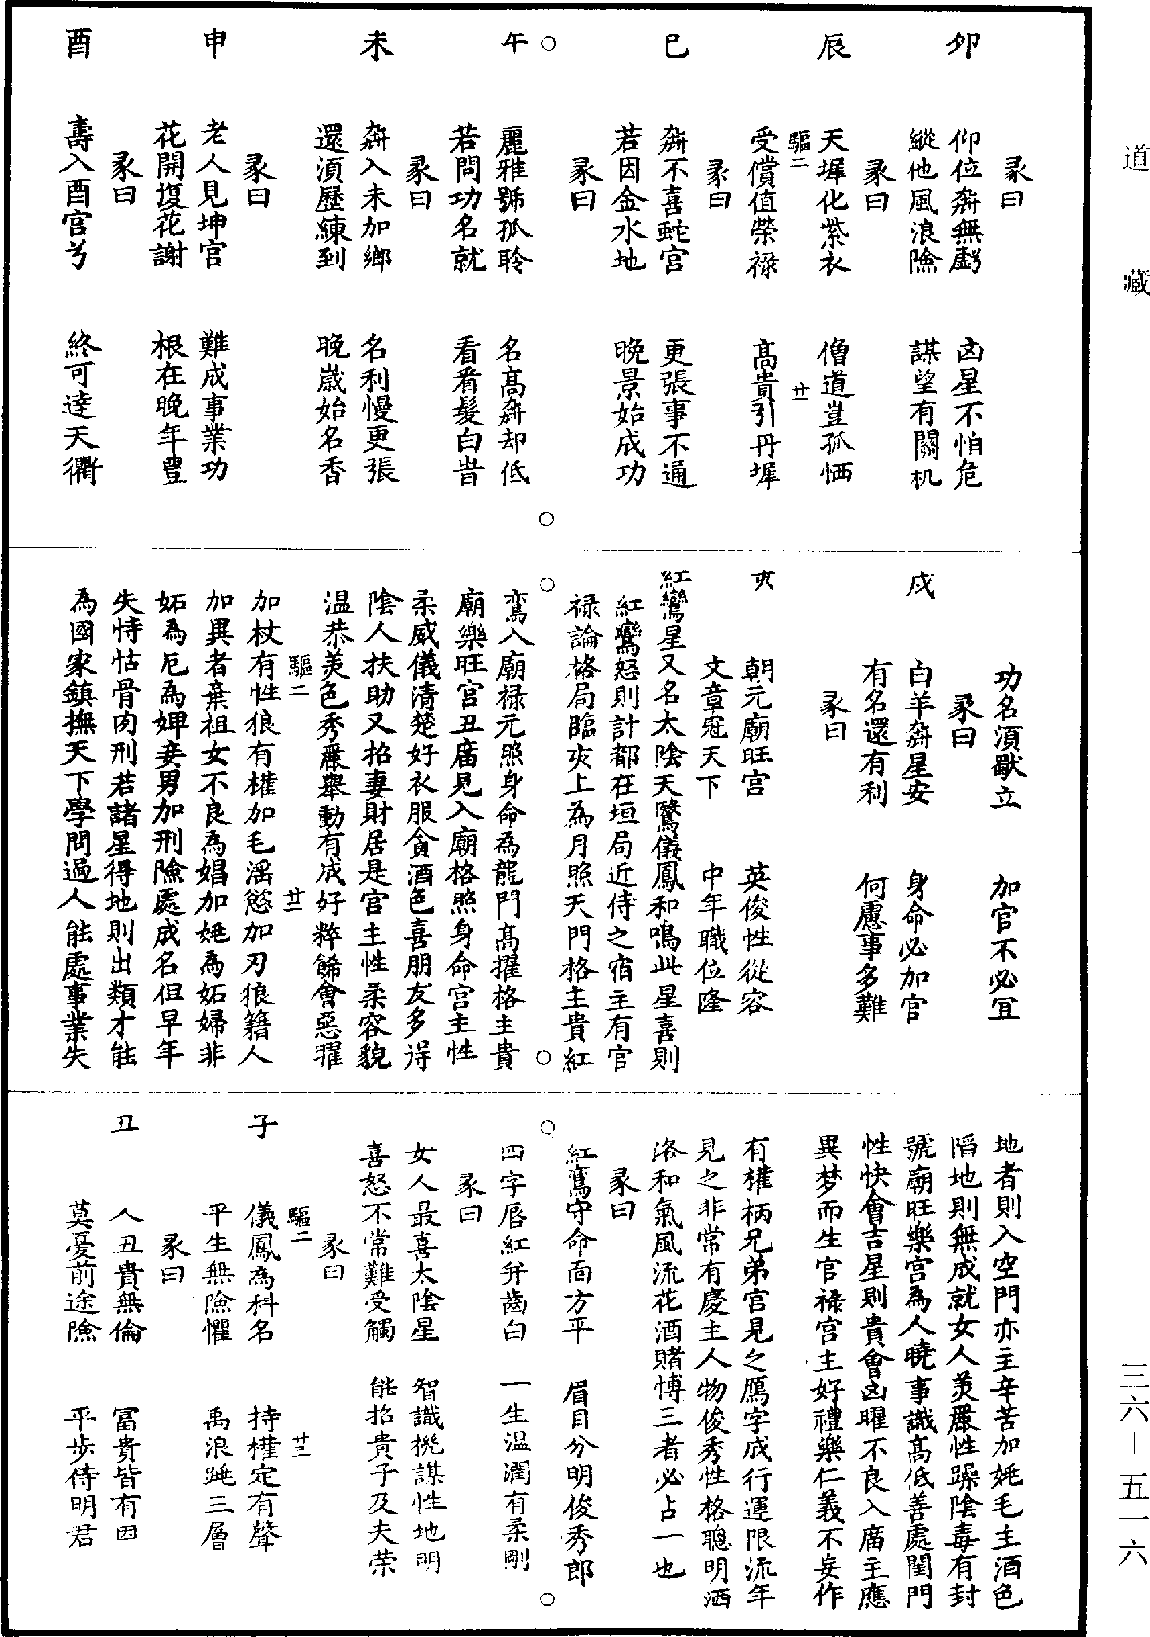 道藏
彖曰
卯　仰位奔無虧　凶星不怕危
縱他風浪險　謀望有關机
彖曰
辰　天墀化紫衣　僧道豈孤恓
驅二　廿一
受償值榮祿　高貴引丹墀
彖曰
巳　奔不喜蛇宫　更張事不通
若因金水地　晚景始成功
彖曰
午　麗雅號孤聆　名高奔却低
若問功名就　看看髮白昔
彖曰
未　奔入未加鄉　名利慢更張
還須歷練到　晚歲始名香
彖曰
申　老人見坤宫　難成事業功
花開復花謝　根在晚年豊
彖曰
酉　壽入酉宫兮　終可達天衢
功名須勵立　加官不必宜
彖曰
戌　白羊奔星安　身命必加官
有名還有利　何慮事多難
彖曰
亥　朝元廟旺宫　英俊性從容
文章冠天下　中年職位隆
紅鸞星又名太陰天鸞儀鳳和鳴此星喜則
紅鸞怒則計都在垣局近侍之宿主有官
祿論格局臨亥上為月照天門格主貴紅
鸞入廟祿元照身命為龍門高擢格主貴
廟樂旺宫丑廣見入廟格照身命宫主性
柔威儀清楚好衣服貪酒色喜朋友多得
陰人扶助又招妻財居是官主性柔容貌
温恭美色秀麗舉動有成好粹餙會惡曜
驅二　廿二
加杖有性狼有權加毛滛慾加刃狼籍人
加異者棄祖女不良為娼加姚為妬婦非
妬為厄為婢妾男加刑險處成名但早年
失恃怙骨肉刑若諸星得地則出類才能
為國家鎮撫天下學問過人能處事業失
地者則入空門亦主辛苦加姚毛主酒色
陷地則無成就女人美麗性躁陰毒有封
號廟旺樂宫為人曉事識高低善處閨門
性快會吉星則貴會凶曜不良入廣主應
異梦而生官禄宫主好禮樂仁義不妄作
有權柄兄弟宫見之鴈字成行運限流年
見之非常有慶主人物俊秀性格聰明洒
洛和氣風流花酒賭博三者必占一也
彖曰
紅鸞守命面方平　眉目分明俊秀郎
四字唇紅牙齒白　一生温潤有柔剛
彖曰
女人最喜太陰星　智識機謀性地明
喜怒不常難受觸　能招貴子及夫榮
彖曰
驅二　廿三
子　儀鳳為科名　持權定有聲
平生無險懼　禹浪跳三層
彖曰
丑　人丑貴無倫　富貴皆有因
莫憂前途險　平步侍明君
三六—五一六